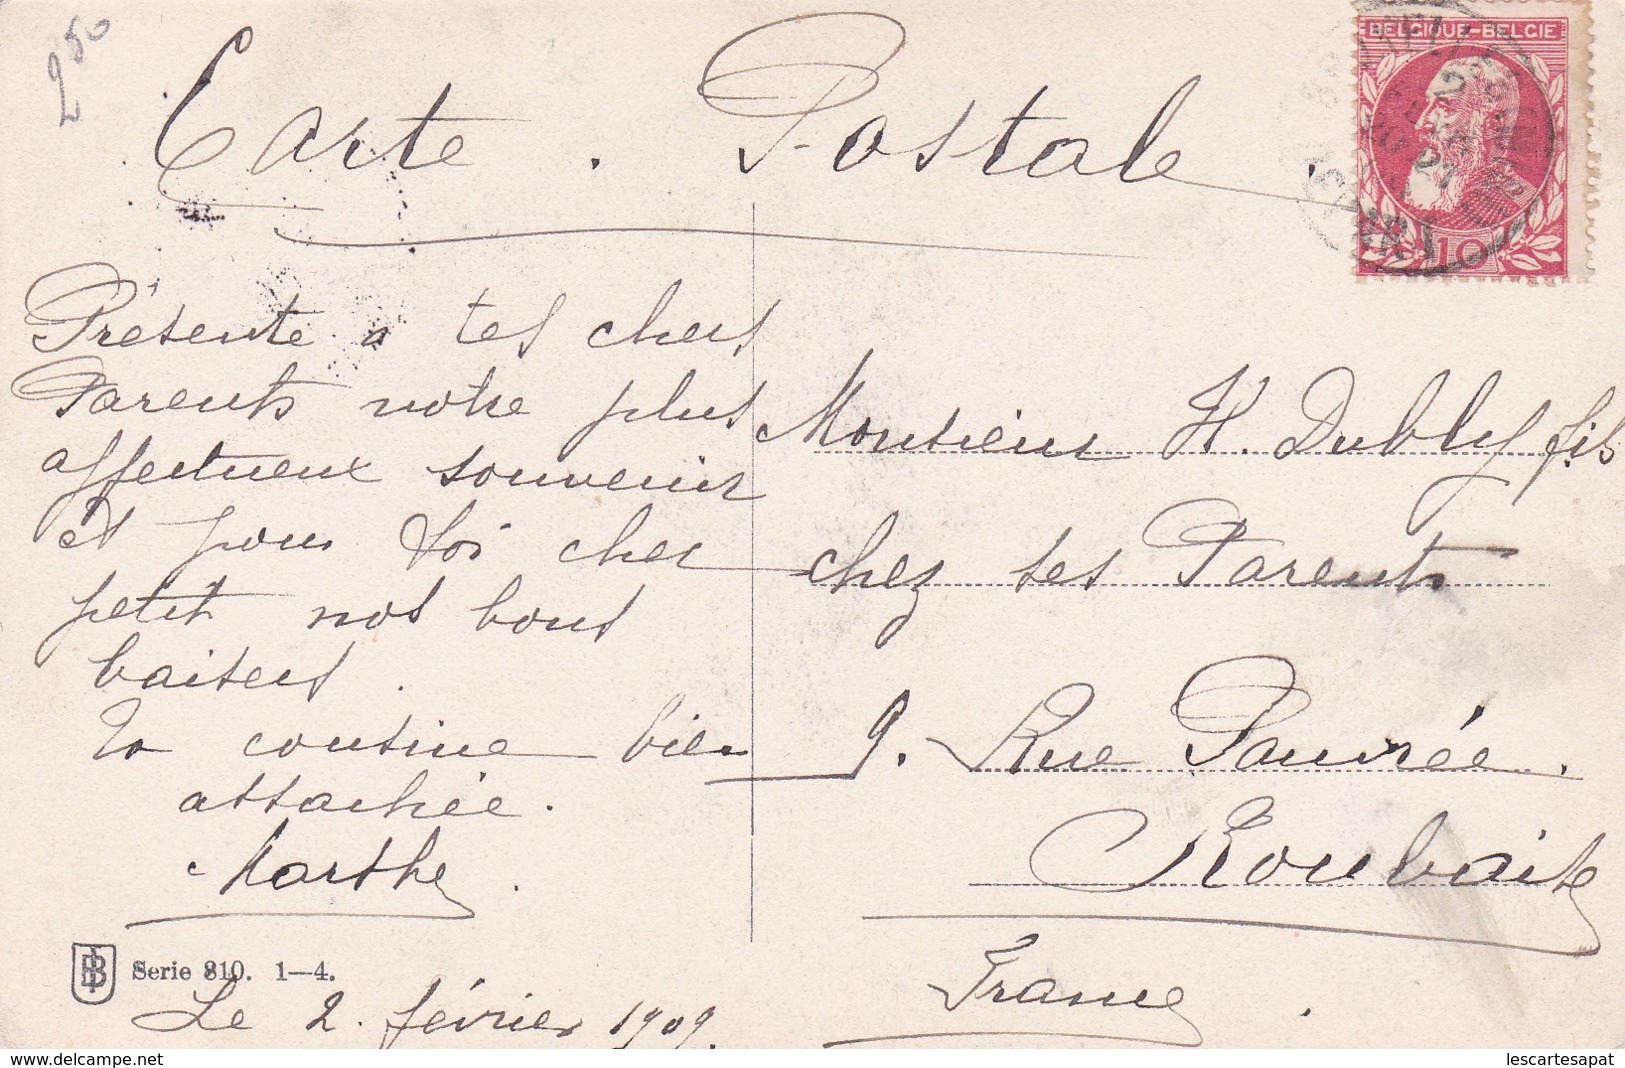 250
Carte . Postale .
BELGIQUE-BELGIE
10
Présente à tes chers
Parents notre plus
affectueux souvenir
et pour toi cher
petit nos bons
baisers .
Ta cousine bien
attachée .
Marthe .
Monsieur H. Dubly fils
chez ses Parents
9. Rue Pauvrée .
Roubaix
France .
Serie 810. 1—4.
Le 2. février 1909.
delcampe.net
lescartesapat